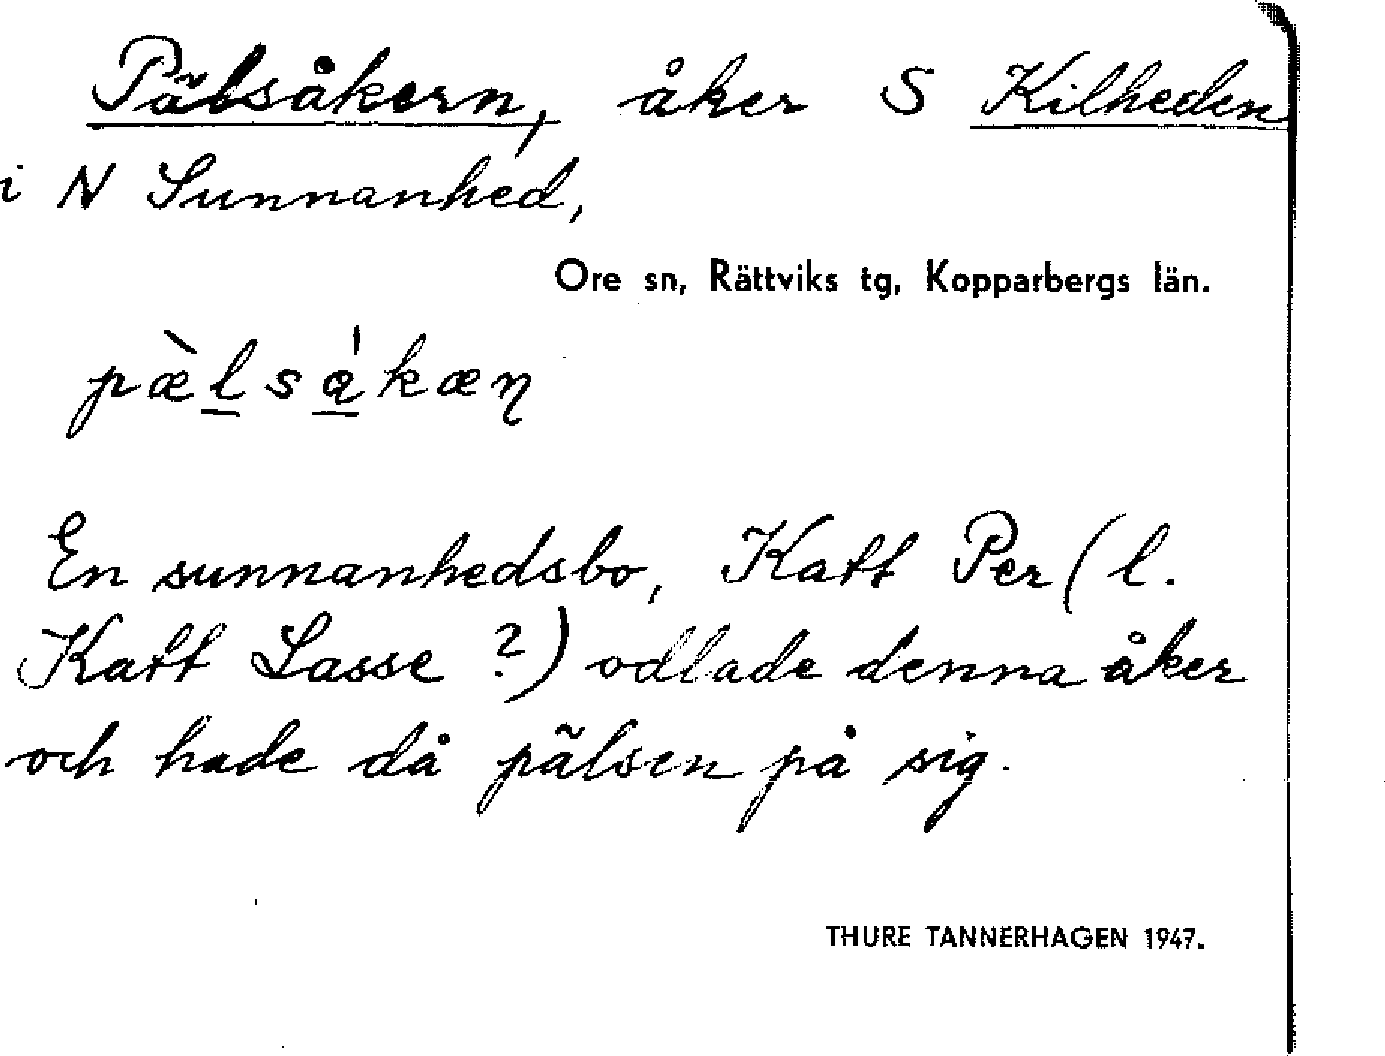 Pälsåkern, åker S Kilheden
i N Sunnanhed,
Ore sn, Rättviks tg, Kopparbergs län.
pæ̀l̲sa̲̍kæn̥
En sunnanhedsbo, Katt Per (l.
Katt Lasse ?) odlade denna åker
och hade då pälsen på sig.
THURE TANNERHAGEN 1947.